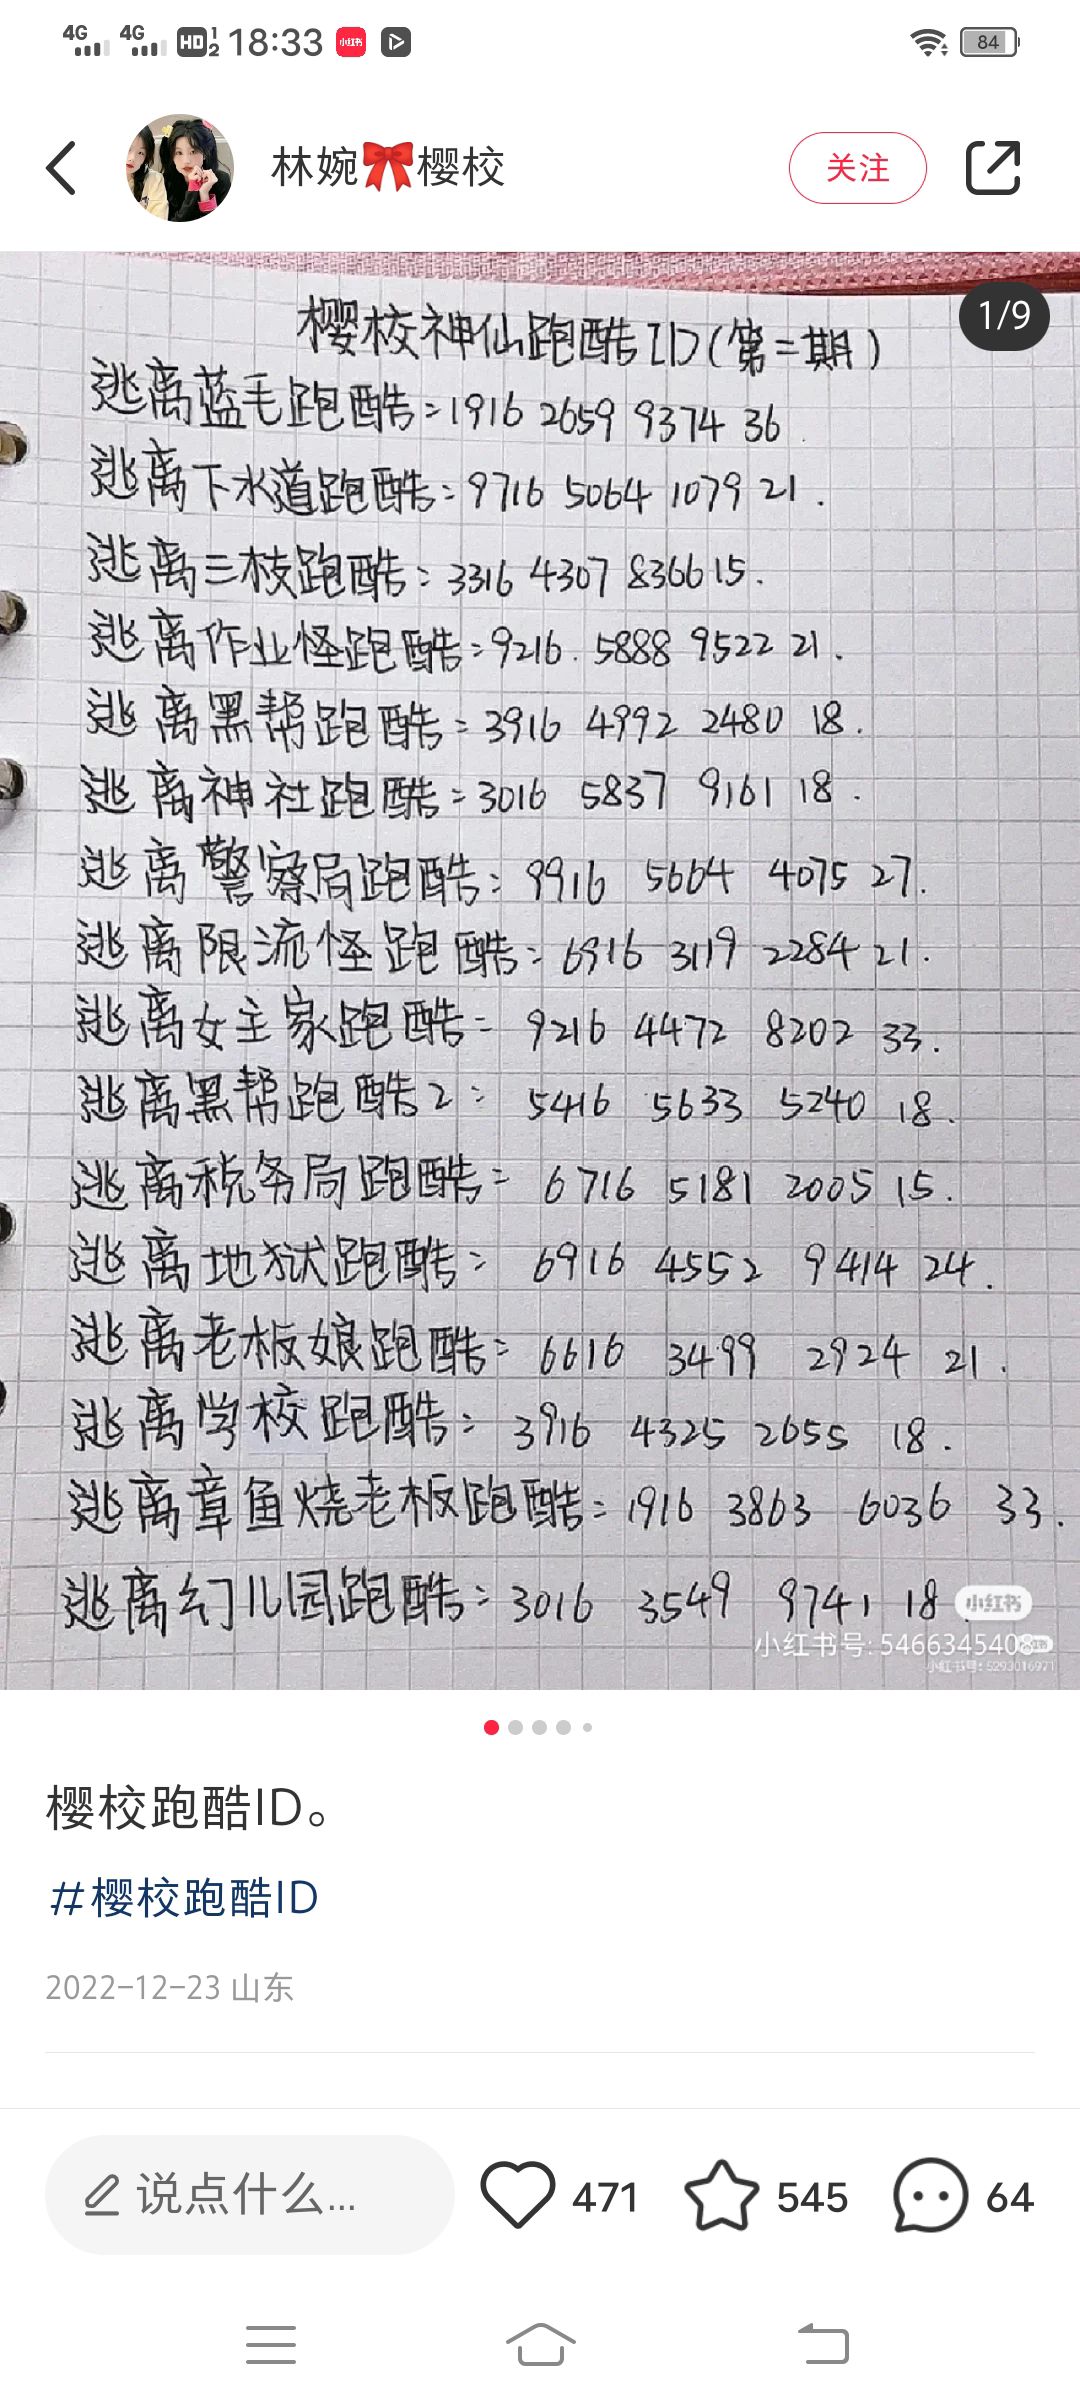 4G 4G HD 1 2 18:33 小红书 84
林婉🎀樱校 关注
1/9
樱校神仙跑酷ID(第二期)
逃离蓝毛跑酷:1916 2659 9374 36
逃离下水道跑酷:9716 5064 1079 21.
逃离三枝跑酷:3316 4307 8366 15.
逃离作业怪跑酷:9216. 5888 9522 21.
逃离黑帮跑酷:3916 4992 2480 18.
逃离神社跑酷:3016 5837 9161 18.
逃离警察局跑酷:9916 5664 4075 27.
逃离限流怪跑酷:6916 3119 2284 21.
逃离女主家跑酷:9216 4472 8202 33.
逃离黑帮跑酷2:5416 5633 5240 18.
逃离税务局跑酷:6716 5181 2005 15.
逃离地狱跑酷:6916 4552 9414 24.
逃离老板娘跑酷:6616 3499 2924 21.
逃离学校跑酷:3916 4325 2655 18.
逃离章鱼烧老板跑酷:1916 3863 6036 33.
逃离幻儿园跑酷:3016 3549 9741 18.
小红书
小红书号:5466345408
小红书号:5293016971
樱校跑酷ID。
#樱校跑酷ID
2022-12-23 山东
说点什么... 471 545 64